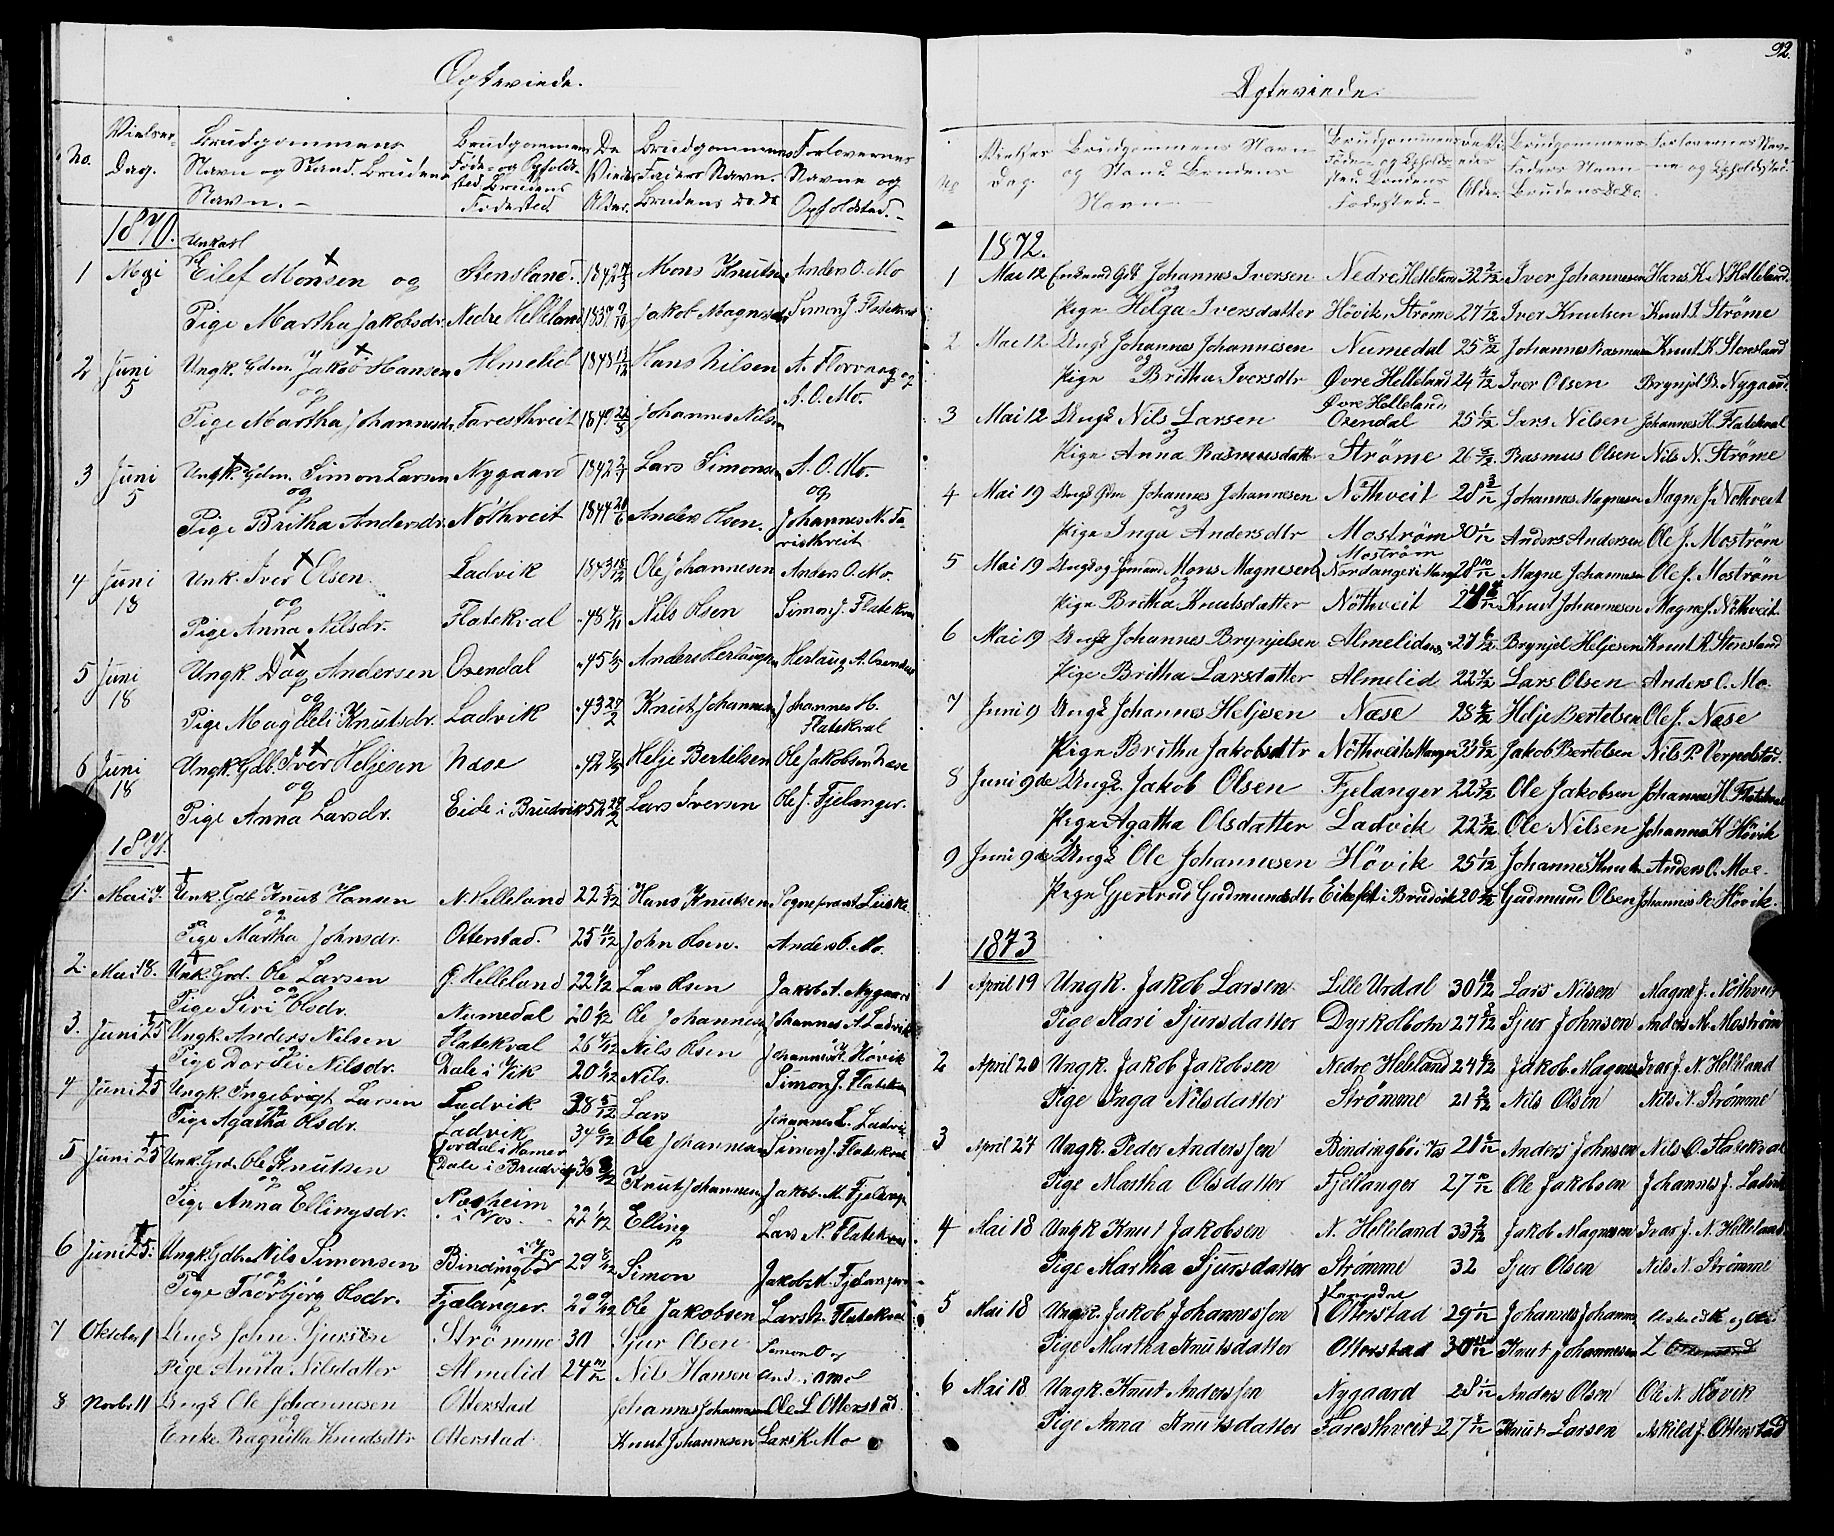 Ægteviede.
No.
Vielses-Dag.
Brudgommens Navn og Stand. Brudens Navn.-
Brudgommens Føde- og Opholdssted. Brudens Fødested.
De Viedes Alder.
Brudgommens Faders Navn. Brudens do do
Forlovernes Navne og Opholdsted.-
1870.
1 Mai Unkarl Eilef Monsen og Stensland 1842 Mons Knutsen Anders O. Mo
Pige Martha Jakobsdr. Nedre Helleland 1837 Jakob Magnesen Simon J. Flatekval
2 Juni 5 Ungk. Gdm. Jakob Hansen Almelid 1848 Hans Nilsen A. Florvaag og
og A. O. Mo.
Pige Martha Johannesdr. Faresthveit 1849 Johannes Nilsen
3 Juni 5 Ungk. Gdm. Simon Larsen Nygaard 1842 Lars Simonsen A. O. Mo.
og og
Pige Britha Andersdr. Nøthveit 1844 Anders Olsen. Johannes N. Faresthveit
4 Juni 18 Unk. Iver Olsen. Ladvik 1843 Ole Johannesen Anders O. Mo.
og
Pige Anna Nilsdr. Flatekval "48 Nils Olsen Simon J. Flatekval
5 Juni 18 Ungk. Dag Andersen Oxendal "45 Anders Herlaugsen Herlaug A. Oxendal
og
Pige Magdeli Knutsdr. Ladvik "43 Knut Johannesen Johannes H. Flatekval
6 Juni 18 Ungk. Gdb. Iver Heljesen Næse "42 Helje Bertelsen Ole Jakobsen Næse
og
Pige Anna Larsdr. Eide i Brudvik 52 Lars Iversen Ole J. Fjelanger.
1871.
1. Mai 7. Unk. Gdb Knut Hansen N. Helleland 22 5/12 Hans Knutsen Sognepræst Leiske
og
Pige Martha Johnsdr. Otterstad. 25 11/12 John Olsen. Anders O. Mo.
2. Mai 18. Unk. Grd. Ole Larsen Ø. Helleland 22 1/12 Lars Olsen Jakob A. Nygaard
og
Pige Siri Olsdr. Numedal 20 Ole Johannesen Johannes A. Ladvik
3. Juni 25 Ungk. Anders Nilsen Flatekval 26 Nils Olsen Johannes K. Høvik
og
Pige Dordei Nilsdr. Dale i Vik 20 Nils. Simon J. Flatekval
4 Juni 25 Ungk. Ingebrigt Larsen Ladvik 38 5/12 Lars Johannes L. Ladvik
og
Pige Agatha Olsdr. Ladvik 34 6/12 Ole Johannesen Simon J. Flatekval
5 Juni 25 Unk. Grd. Ole Knutsen Jordal i Hamer Dale i Brudvig 36 Knut Johannesen Jakob M. Fjelanger
og
Pige Anna Ellingsdr. Næsheim i Vos. 22 1/12 Elling Lars N. Flatekval
6 Juni 25. Ungk. Gdbr. Nils Simonsen Bindingbø i Vos 29 8/12 Simon Jakob M. Fjelanger
og
Pige Thorbjørg Olsdr. Fjælanger. 29 Ole Jakobsen Lars N. Flatekval
7 Oktober 1 Ungk John Sjursen Strømme 30 Sjur Olsen Simon O og
Pige Anna Nilsdatter Almelid 24 Nils Hansen And. O. Mo
8 Novbr. 11 Ungk Ole Johannesen Otterstad Johannes Johannesen Ole L. Otterstad.
og
Enke Ragnilla Knudsdtr Otterstad Knut Johannesen Lars K Mo
92.
Ægteviede.
No
Vielses Dag.
Brudgommens Navn og Stand Brudens Navn.
Brudgommens Føde- og Opholdssted. Brudens Fødested.-
de Viedes Alder.
Brudgommens Faders Navn Brudens Do Do.
Forlovernes Navne og Opholdsted.
1872.
1 Mai 12 Enkemd Gift Johannes Iversen Nedre Helleland 32 2/12 Iver Johannesen Hans K. N Helleland.
og
Pige Helga Iversdatter Høvik, Strøme 27 1/12 Iver Knutsen Knut I. Strøme
2 Mai 12 Ungk Johannes Johannesen Numedal 25 8/12 Johannes Rasmussen Knut K. Stensland
og
Pige Britha Iversdtr Øvre Helleland 24 4/12 Iver Olsen Brynjel B. Nygaard
3 Mai 12 Ungk Nils Larsen Øvre Helleland Oxendal 25 6/12 Lars Nilsen Johannes H. Flatekval
og
Pige Anna Rasmusdatter Strøme 26 Rasmus Olsen Nils N. Strøme
4 Mai 19 Ungk Gdm Johannes Johannesen Nøthveit 28 3/12 Johannes Magnesen Magne J. Nøthveit
og
Pige Inga Andersdtr Mostrøm 30 1/12 Anders Andersen Ole J. Mostrøm
5 Mai 19 Ungk og Smand Mons Magnesen Mostrøm Nordanger i Mang 28 10/12 Magne Johannesen Ole J. Mostrøm
og
Pige Britha Knutsdatter Nøthveit 21 Knut Johannesen Magne J. Nøthveit
6 Mai 19 Ungk Johannes Brynjelsen Almeliden 27 6/12 Brynjel Heljesen Knut K. Stensland
Pige Britha Larsdatter Almelid 22 Lars Olsen Anders O. Mo.
7 Juni 9 Ungk Johannes Heljesen Næse 25 Helje Bertelsen Ole J. Næse
Pige Britha Jakobsdtr Nøthveit i Manger 33 6/12 Jakob Bertelsen Nils P. Verpelstad.
8 Juni 9de Ungk Jakob Olsen Fjelanger 22 3/12 Ole Jakobsen Johannes H. Flatekval
Pige Agatha Olsdatter Ladvik 22 3/12 Ole Nilsen Johannes K Høvik
9 Juni 9de Ungk Ole Johannesen Høvik 25 1/12 Johannes Knutsen Anders O. Moe.
Pige Gjertrud Gudmundsdtr. Eikefet i Brudvik 20 Gudmund Olsen Johannes K. Høvik.
1873
1 April 19 Ungk. Jakob Larsen Lille Urdal 30 10/12 Lars Nilsen Magne J. Nøthveit
Pige Kari Sjursdatter Dyrkolbotn 27 Sjur Johnsen Anders M. Mostrøm
2 April 20 Ungk. Jakob Jakobsen Nedre Helleland 24 Jakob Magnesen Ivar J. N. Helleland
Pige Inga Nilsdatter Strømme 21 2/12 Nils Olsen Nils N. Strømme
3 April 27 Ungk. Peder Anderssen Bindingbø i Vos 21 6/12 Anders Johnsen Nils O. Flatekval
Pige Martha Olsdatter Fjellanger 27 Ole Jakobsen Johannes J. Ladvik
4 Mai 18 Ungk Knut Jakobsen N. Helleland 33 2/12 Jakob Magnesen Ivar J. N. Helleland
Pige Martha Sjursdatter Strømme 32 Sjur Olsen Nils N. Strømme
5 Mai 18 Ungk. Jakob Johannessen Otterstad 29 1/12 Johannes Johannesen Askild K og Ole
Pige Martha Knutsdatter Otterstad 30 Knut Johannesen L Otterstad
6 Mai 18 Ungk. Knut Anderssen Nygaard 28 1/12 Anders Olsen Ole N. Høvik
Pige Anna Knutsdatter Faresthveit 27 Knut Larsen Askild J. Otterstad